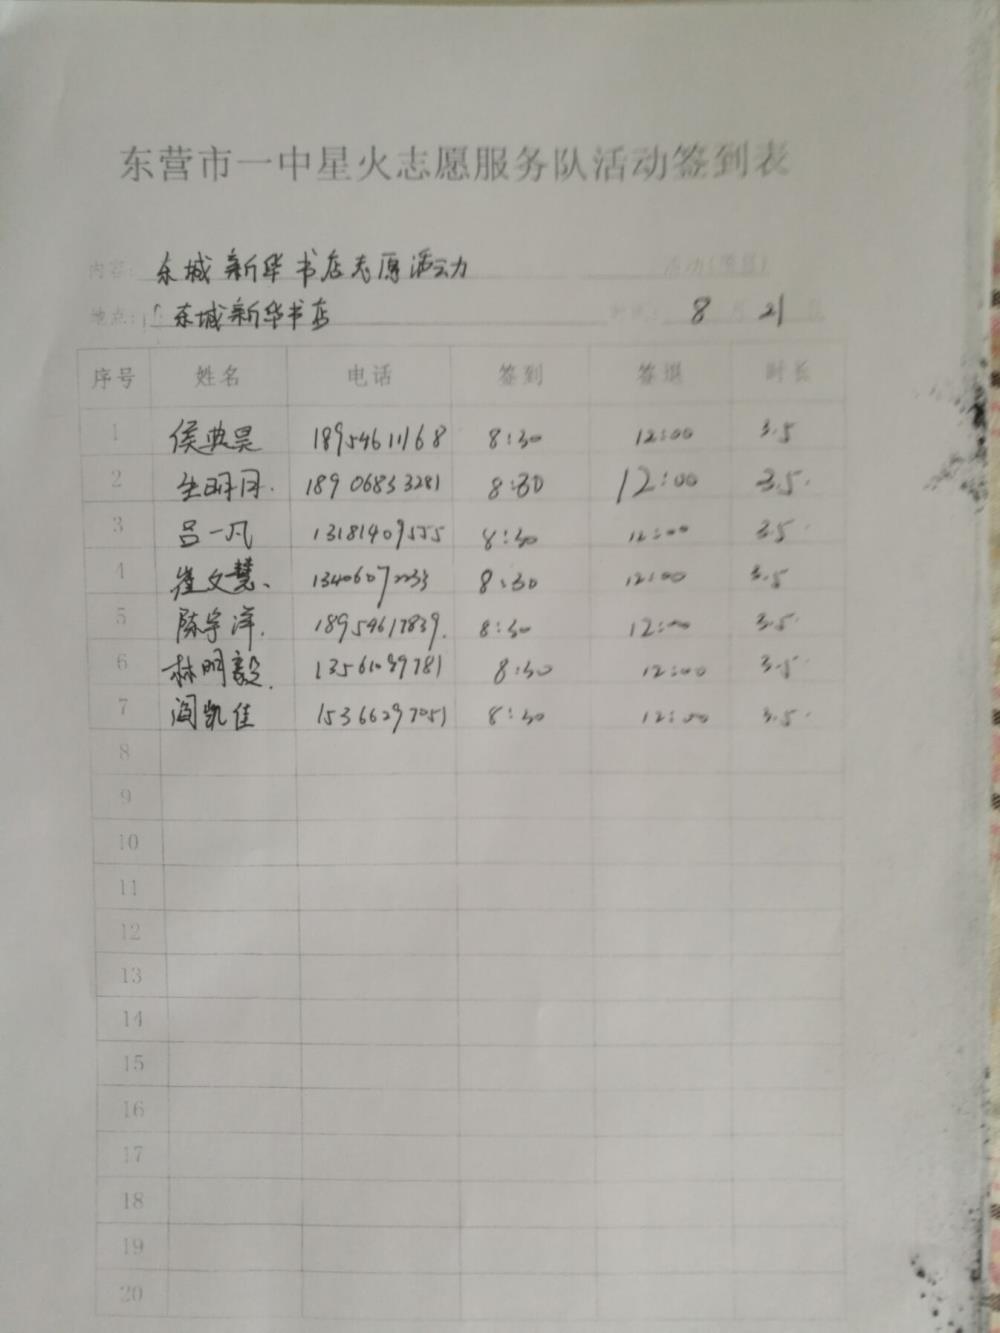 东营市一中星火志愿服务队活动签到表
内容: 东城新华书店志愿活动 活动(项目)
地点: 东城新华书店 时间: 8 月 21 日
序号 姓名 电话 签到 签退 时长
1 侯典昊 18954611168 8:30 12:00 3.5
2 生明月. 18906833281 8:30 12:00 3.5.
3 吕一凡 13181409555 8:30 12:00 3.5.
4 崔文慧、 13406072233 8:30 12:00 3.5
5 陈宇洋. 18954617839. 8:30 12:00 3.5.
6 林明毅. 13561039781 8:30 12:00 3.5
7 阎凯佳 15366297051 8:30 12:00 3.5.
8
9
10
11
12
13
14
15
16
17
18
19
20